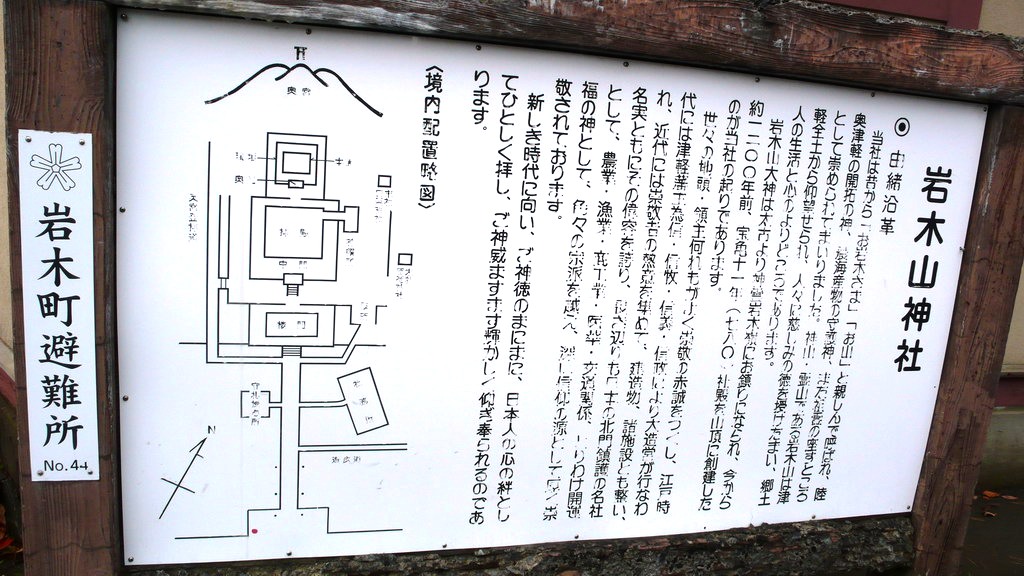 岩木山神社
由緒沿革
当社は昔から「お岩木さま」「お山」と親しんで呼ばれ、陸
奥津軽の開拓の神、農海産物の守護神、また祖霊の座すところ
として崇められてまいりました。神山、霊山である岩木山は津
軽全土から仰望せられ、人々に慈しみの徳を授けたまい、郷土
人の生活と心のよりどころであります。
岩木山大神は太古より神霊岩木山にお鎮りになられ、今から
約一二〇〇年前、宝亀十一年(七八〇)社殿を山頂に創建した
のが当社の起りであります。
世々の地頭・領主何れもが よく崇敬の赤誠をつくし、江戸時
代には津軽藩主為信・信枚・信義・信政により大造営が行なわ
れ、近代には崇敬者の熱意を集めて、建造物、諸施設とも整い、
名実ともにその偉容を誇り、 日本の北門鎮護の名社
として、農業・漁業・商工業・医薬・交通関係、とりわけ開運
福の神として、色々の宗派を越え、深い信仰の源として広く崇
敬されております。
新しき時代に向い、ご神徳のまにまに、日本人の心の絆とし
てひとしく拝し、ご神威ますます輝かしく仰ぎ奉られるのであ
ります。
〈境内配置略図〉
奥宮
拝殿
中門
楼門
社務所
遊歩道
N
岩木町避難所
No.44